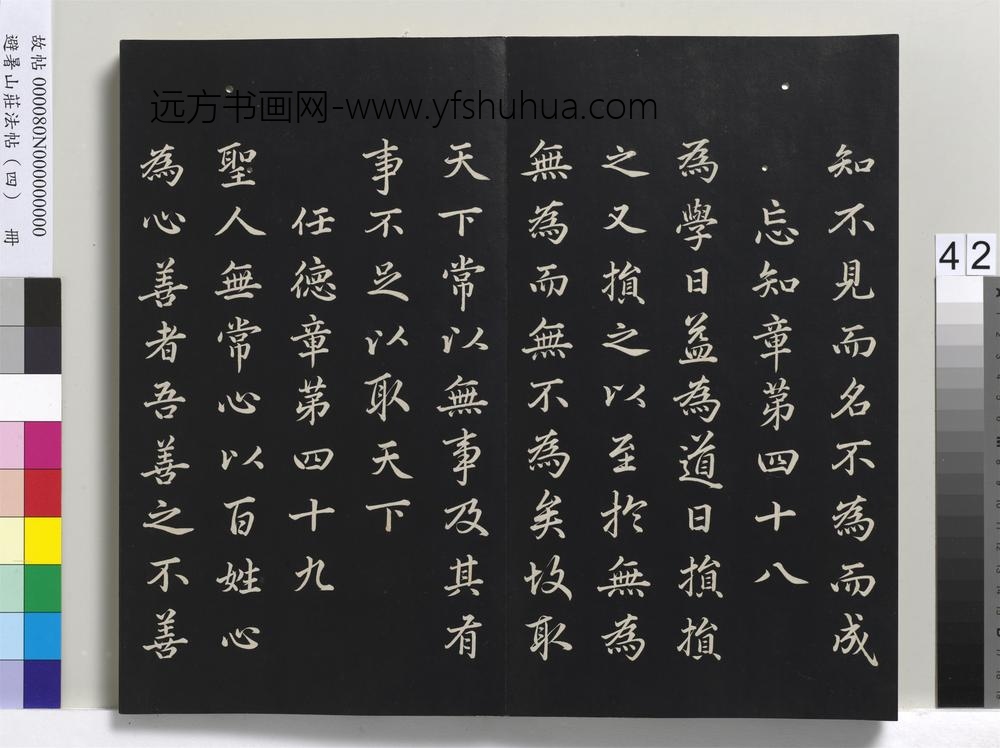 知不見而名不為而成
忘知章第四十八
為學日益為道日損損
之又損之以至於無為
無為而無不為矣故取
天下常以無事及其有
事不足以取天下
任德章第四十九
聖人無常心以百姓心
為心善者吾善之不善
远方书画网-www.yfshuhua.com
故帖 000080N000000000
避暑山莊法帖（四） 冊
42